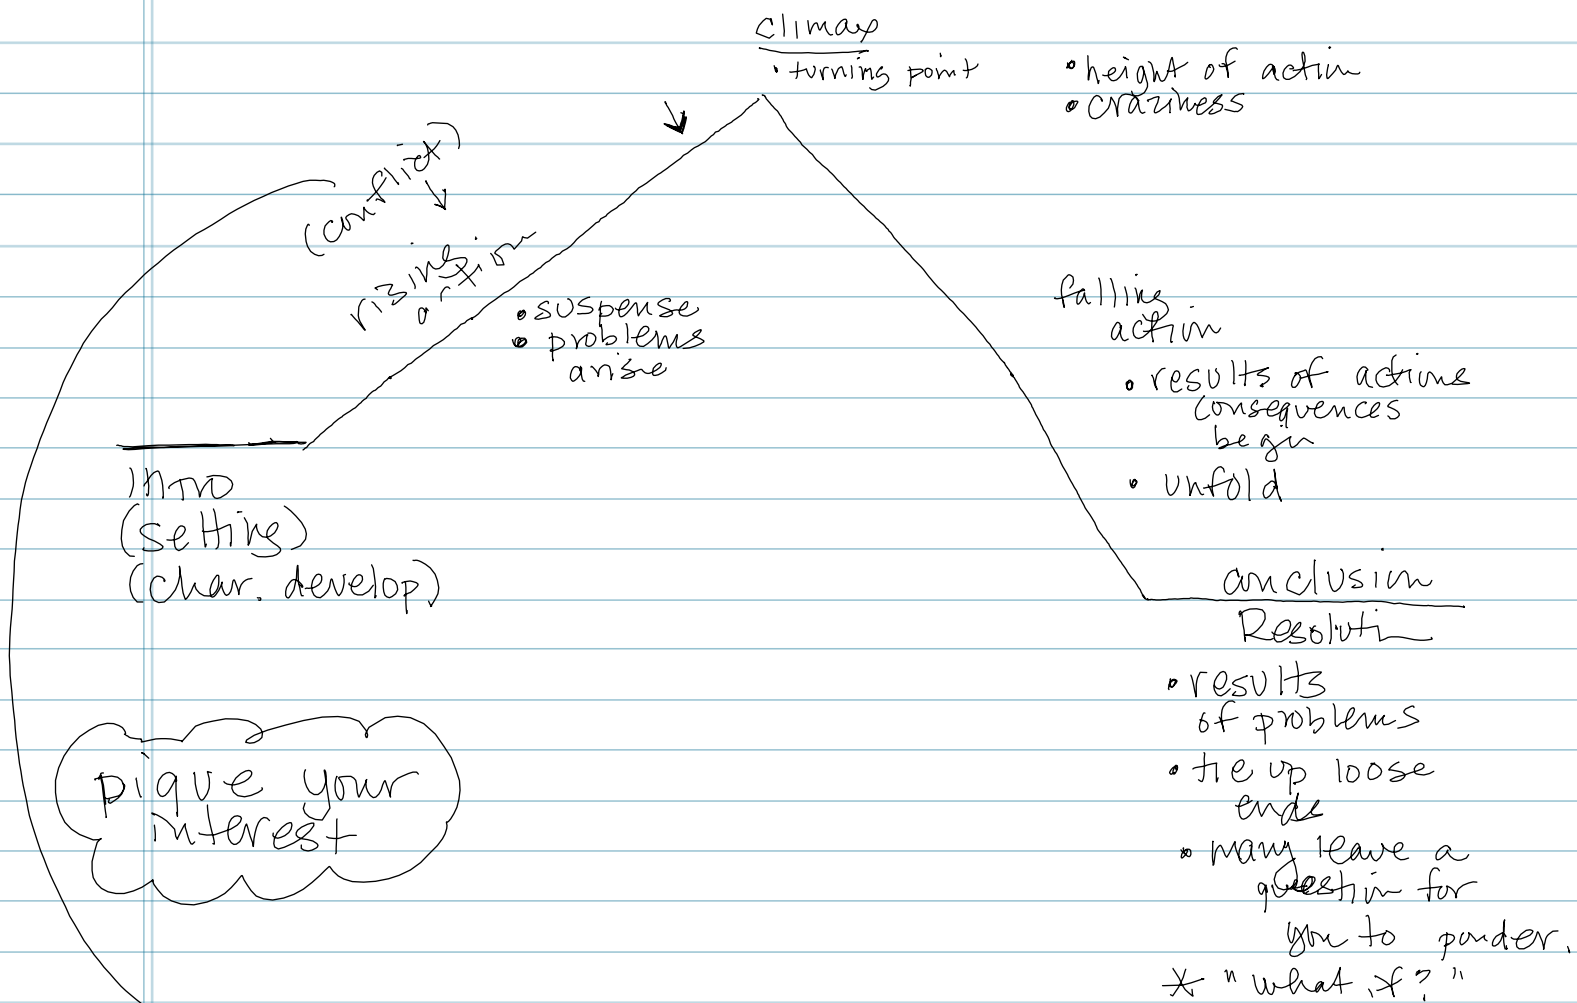 climax
• turning point
• height of action
• craziness
(conflict)
rising
action
• suspense
• problems
arise
falling
action
• results of actions
consequences
begin
• unfold
Intro
(setting)
(char. develop)
conclusion
Resolution
• results
of problems
• tie up loose
ends
• many leave a
question for
you to ponder.
* "what if?"
pique your
interest